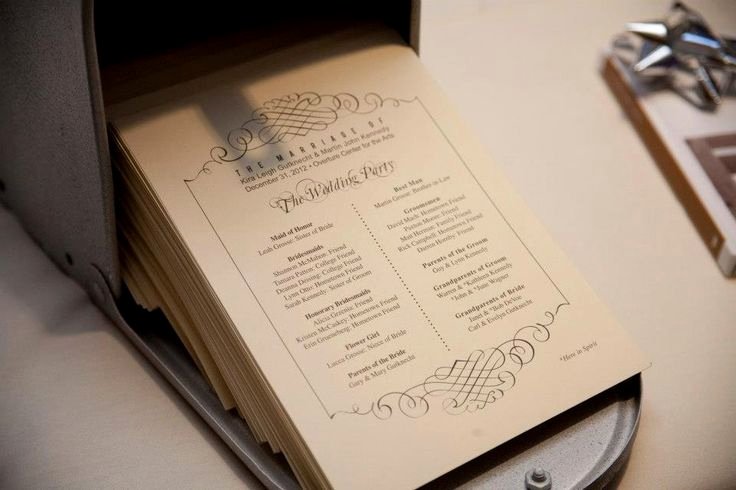 THE MARRIAGE OF
Kira Leigh Gutknecht & Martin John Kennedy
December 31, 2012 • Overture Center for the Arts
The Wedding Party
Maid of Honor
Leah Grosse: Sister of Bride
Bridesmaids
Shannon McMahon: Friend
Tamara Patton: College Friend
Deanna Dessing: College Friend
Lynn Otto: Hometown Friend
Sarah Kennedy: Sister of Groom
Honorary Bridesmaids
Alicia Grzenia: Friend
Kristen McCaskey: Hometown Friend
Erin Gruenberg: Hometown Friend
Flower Girl
Lucca Grosse: Niece of Bride
Parents of the Bride
Gary & Mary Gutknecht
Best Man
Martin Grosse: Brother-in-Law
Groomsmen
David Mach: Hometown Friend
Payton Moore: College Friend
Mat Herman: Family Friend
Rick Campbell: Hometown Friend
Darren Hornby: Friend
Parents of the Groom
Guy & Lynn Kennedy
Grandparents of Groom
Warren & *Kathleen Kennedy
*John & *June Wagner
Grandparents of Bride
Janet & *Bob DeVoe
Carl & Evelyn Gutknecht
*Here in Spirit